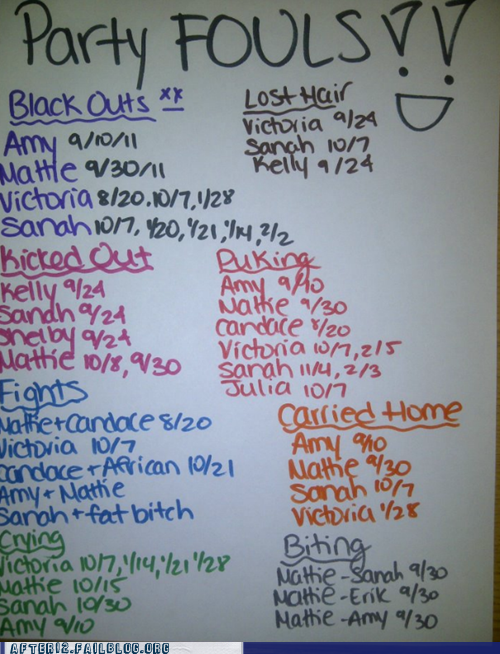 Party FOULS!!
Black Outs xx
Amy 9/10/11
Mattie 9/30/11
Victoria 8/20, 10/7, 1/28
Sarah 10/7, 1/20, 1/21, 1/14, 2/2
Lost Hair
Victoria 9/24
Sarah 10/7
Kelly 9/24
Kicked Out
Kelly 9/24
Sarah 9/24
Shelby 9/24
Mattie 10/8, 9/30
Puking
Amy 9/10
Mattie 9/30
Candace 8/20
Victoria 10/7, 2/5
Sarah 11/4, 2/3
Julia 10/7
Fights
Mattie + Candace 8/20
Victoria 10/7
Candace + African 10/21
Amy + Mattie
Sarah + fat bitch
Carried Home
Amy 9/10
Mattie 9/30
Sarah 10/7
Victoria 1/28
Crying
Victoria 10/7, 1/14, 1/21 1/28
Mattie 10/15
Sarah 10/30
Amy 9/10
Biting
Mattie - Sarah 9/30
Mattie - Erik 9/30
Mattie - Amy 9/30
AFTER12.FAILBLOG.ORG